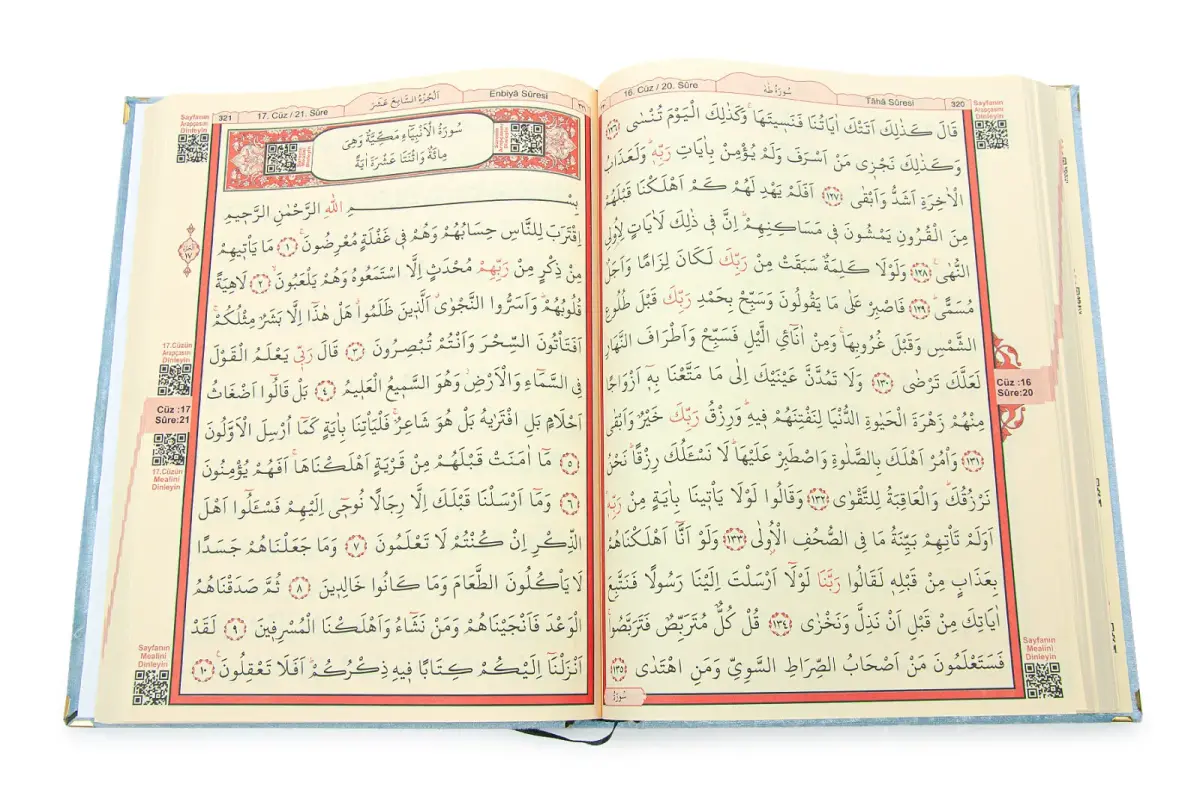 16. Cüz / 20. Sûre
سُورَةُ طٰهٰ
Tâhâ Sûresi
320
قَالَ كَذٰلِكَ اَتَتْكَ اٰيَاتُنَا فَنَسٖيتَهَاۚ وَكَذٰلِكَ الْيَوْمَ تُنْسٰى ﴿١٢٦﴾
وَكَذٰلِكَ نَجْزٖى مَنْ اَسْرَفَ وَلَمْ يُؤْمِنْ بِاٰيَاتِ رَبِّهٖۜ وَلَعَذَابُ
الْاٰخِرَةِ اَشَدُّ وَاَبْقٰى ﴿١٢٧﴾ اَفَلَمْ يَهْدِ لَهُمْ كَمْ اَهْلَكْنَا قَبْلَهُمْ
مِنَ الْقُرُونِ يَمْشُونَ فٖى مَسَاكِنِهِمْۜ اِنَّ فٖى ذٰلِكَ لَاٰيَاتٍ لِاُولِى
النُّهٰى۟ ﴿١٢٨﴾ وَلَوْلَا كَلِمَةٌ سَبَقَتْ مِنْ رَبِّكَ لَكَانَ لِزَامًا وَاَجَلٌ
مُسَمًّىۜ ﴿١٢٩﴾ فَاصْبِرْ عَلٰى مَا يَقُولُونَ وَسَبِّحْ بِحَمْدِ رَبِّكَ قَبْلَ طُلُوعِ
الشَّمْسِ وَقَبْلَ غُرُوبِهَاۚ وَمِنْ اٰنَٓائِ الَّيْلِ فَسَبِّحْ وَاَطْرَافَ النَّهَارِ
لَعَلَّكَ تَرْضٰى ﴿١٣٠﴾ وَلَا تَمُدَّنَّ عَيْنَيْكَ اِلٰى مَا مَتَّعْنَا بِهٖٓ اَزْوَاجًا
مِنْهُمْ زَهْرَةَ الْحَيٰوةِ الدُّنْيَا لِنَفْتِنَهُمْ فٖيهِۜ وَرِزْقُ رَبِّكَ خَيْرٌ وَاَبْقٰى
﴿١٣١﴾ وَأْمُرْ اَهْلَكَ بِالصَّلٰوةِ وَاصْطَبِرْ عَلَيْهَاۜ لَا نَسْـَٔلُكَ رِزْقًاۜ نَحْنُ
نَرْزُقُكَۜ وَالْعَاقِبَةُ لِلتَّقْوٰى ﴿١٣٢﴾ وَقَالُوا لَوْلَا يَأْتٖينَا بِاٰيَةٍ مِنْ رَبِّهٖۜ
اَوَلَمْ تَأْتِهِمْ بَيِّنَةُ مَا فِى الصُّحُفِ الْاُولٰى ﴿١٣٣﴾ وَلَوْ اَنَّٓا اَهْلَكْنَاهُمْ
بِعَذَابٍ مِنْ قَبْلِهٖ لَقَالُوا رَبَّنَا لَوْلَٓا اَرْسَلْتَ اِلَيْنَا رَسُولًا فَنَتَّبِعَ
اٰيَاتِكَ مِنْ قَبْلِ اَنْ نَذِلَّ وَنَخْزٰى ﴿١٣٤﴾ قُلْ كُلٌّ مُتَرَبِّصٌ فَتَرَبَّصُواۚ
فَسَتَعْلَمُونَ مَنْ اَصْحَابُ الصِّرَاطِ السَّوِيِّ وَمَنِ اهْتَدٰى ﴿١٣٥﴾
سُورَةُ
Sayfanın
Arapçasını
Dinleyin
Cüz :16
Sûre:20
Sayfanın
Mealini
Dinleyin
321
17. Cüz / 21. Sûre
اَلْجُزْءُ السَّابِعَ عَشَرَ
Enbiyâ Sûresi
سُورَةُ الْاَنْبِيَٓاءِ مَكِّيَّةٌ وَهِىَ
مِائَةٌ وَاثْنَتَا عَشْرَةَ اٰيَةً
بِسْمِ اللّٰهِ الرَّحْمٰنِ الرَّحٖيمِ
اِقْتَرَبَ لِلنَّاسِ حِسَابُهُمْ وَهُمْ فٖى غَفْلَةٍ مُعْرِضُونَۚ ﴿١﴾ مَا يَأْتٖيهِمْ
مِنْ ذِكْرٍ مِنْ رَبِّهِمْ مُحْدَثٍ اِلَّا اسْتَمَعُوهُ وَهُمْ يَلْعَبُونَۙ ﴿٢﴾ لَاهِيَةً
قُلُوبُهُمْۜ وَاَسَرُّوا النَّجْوٰىۗ اَلَّذٖينَ ظَلَمُواۗ هَلْ هٰذَٓا اِلَّا بَشَرٌ مِثْلُكُمْۚ
اَفَتَأْتُونَ السِّحْرَ وَاَنْتُمْ تُبْصِرُونَ ﴿٣﴾ قَالَ رَبّٖى يَعْلَمُ الْقَوْلَ
فِى السَّمَٓاءِ وَالْاَرْضِۘ وَهُوَ السَّمٖيعُ الْعَلٖيمُ ﴿٤﴾ بَلْ قَالُٓوا اَضْغَاثُ
اَحْلَامٍ بَلِ افْتَرٰيهُ بَلْ هُوَ شَاعِرٌۚ فَلْيَأْتِنَا بِاٰيَةٍ كَمَٓا اُرْسِلَ الْاَوَّلُونَ
﴿٥﴾ مَٓا اٰمَنَتْ قَبْلَهُمْ مِنْ قَرْيَةٍ اَهْلَكْنَاهَاۚ اَفَهُمْ يُؤْمِنُونَ
﴿٦﴾ وَمَٓا اَرْسَلْنَا قَبْلَكَ اِلَّا رِجَالًا نُوحٖٓى اِلَيْهِمْ فَسْـَٔلُٓوا اَهْلَ
الذِّكْرِ اِنْ كُنْتُمْ لَا تَعْلَمُونَ ﴿٧﴾ وَمَا جَعَلْنَاهُمْ جَسَدًا
لَا يَأْكُلُونَ الطَّعَامَ وَمَا كَانُوا خَالِدٖينَ ﴿٨﴾ ثُمَّ صَدَقْنَاهُمُ
الْوَعْدَ فَاَنْجَيْنَاهُمْ وَمَنْ نَشَٓاءُ وَاَهْلَكْنَا الْمُسْرِفٖينَ ﴿٩﴾ لَقَدْ
اَنْزَلْنَٓا اِلَيْكُمْ كِتَابًا فٖيهِ ذِكْرُكُمْۜ اَفَلَا تَعْقِلُونَ۟ ﴿١٠﴾
Sayfanın
Arapçasını
Dinleyin
17.Cüzün
Arapçasını
Dinleyin
Cüz :17
Sûre:21
17.Cüzün
Mealini
Dinleyin
Sayfanın
Mealini
Dinleyin